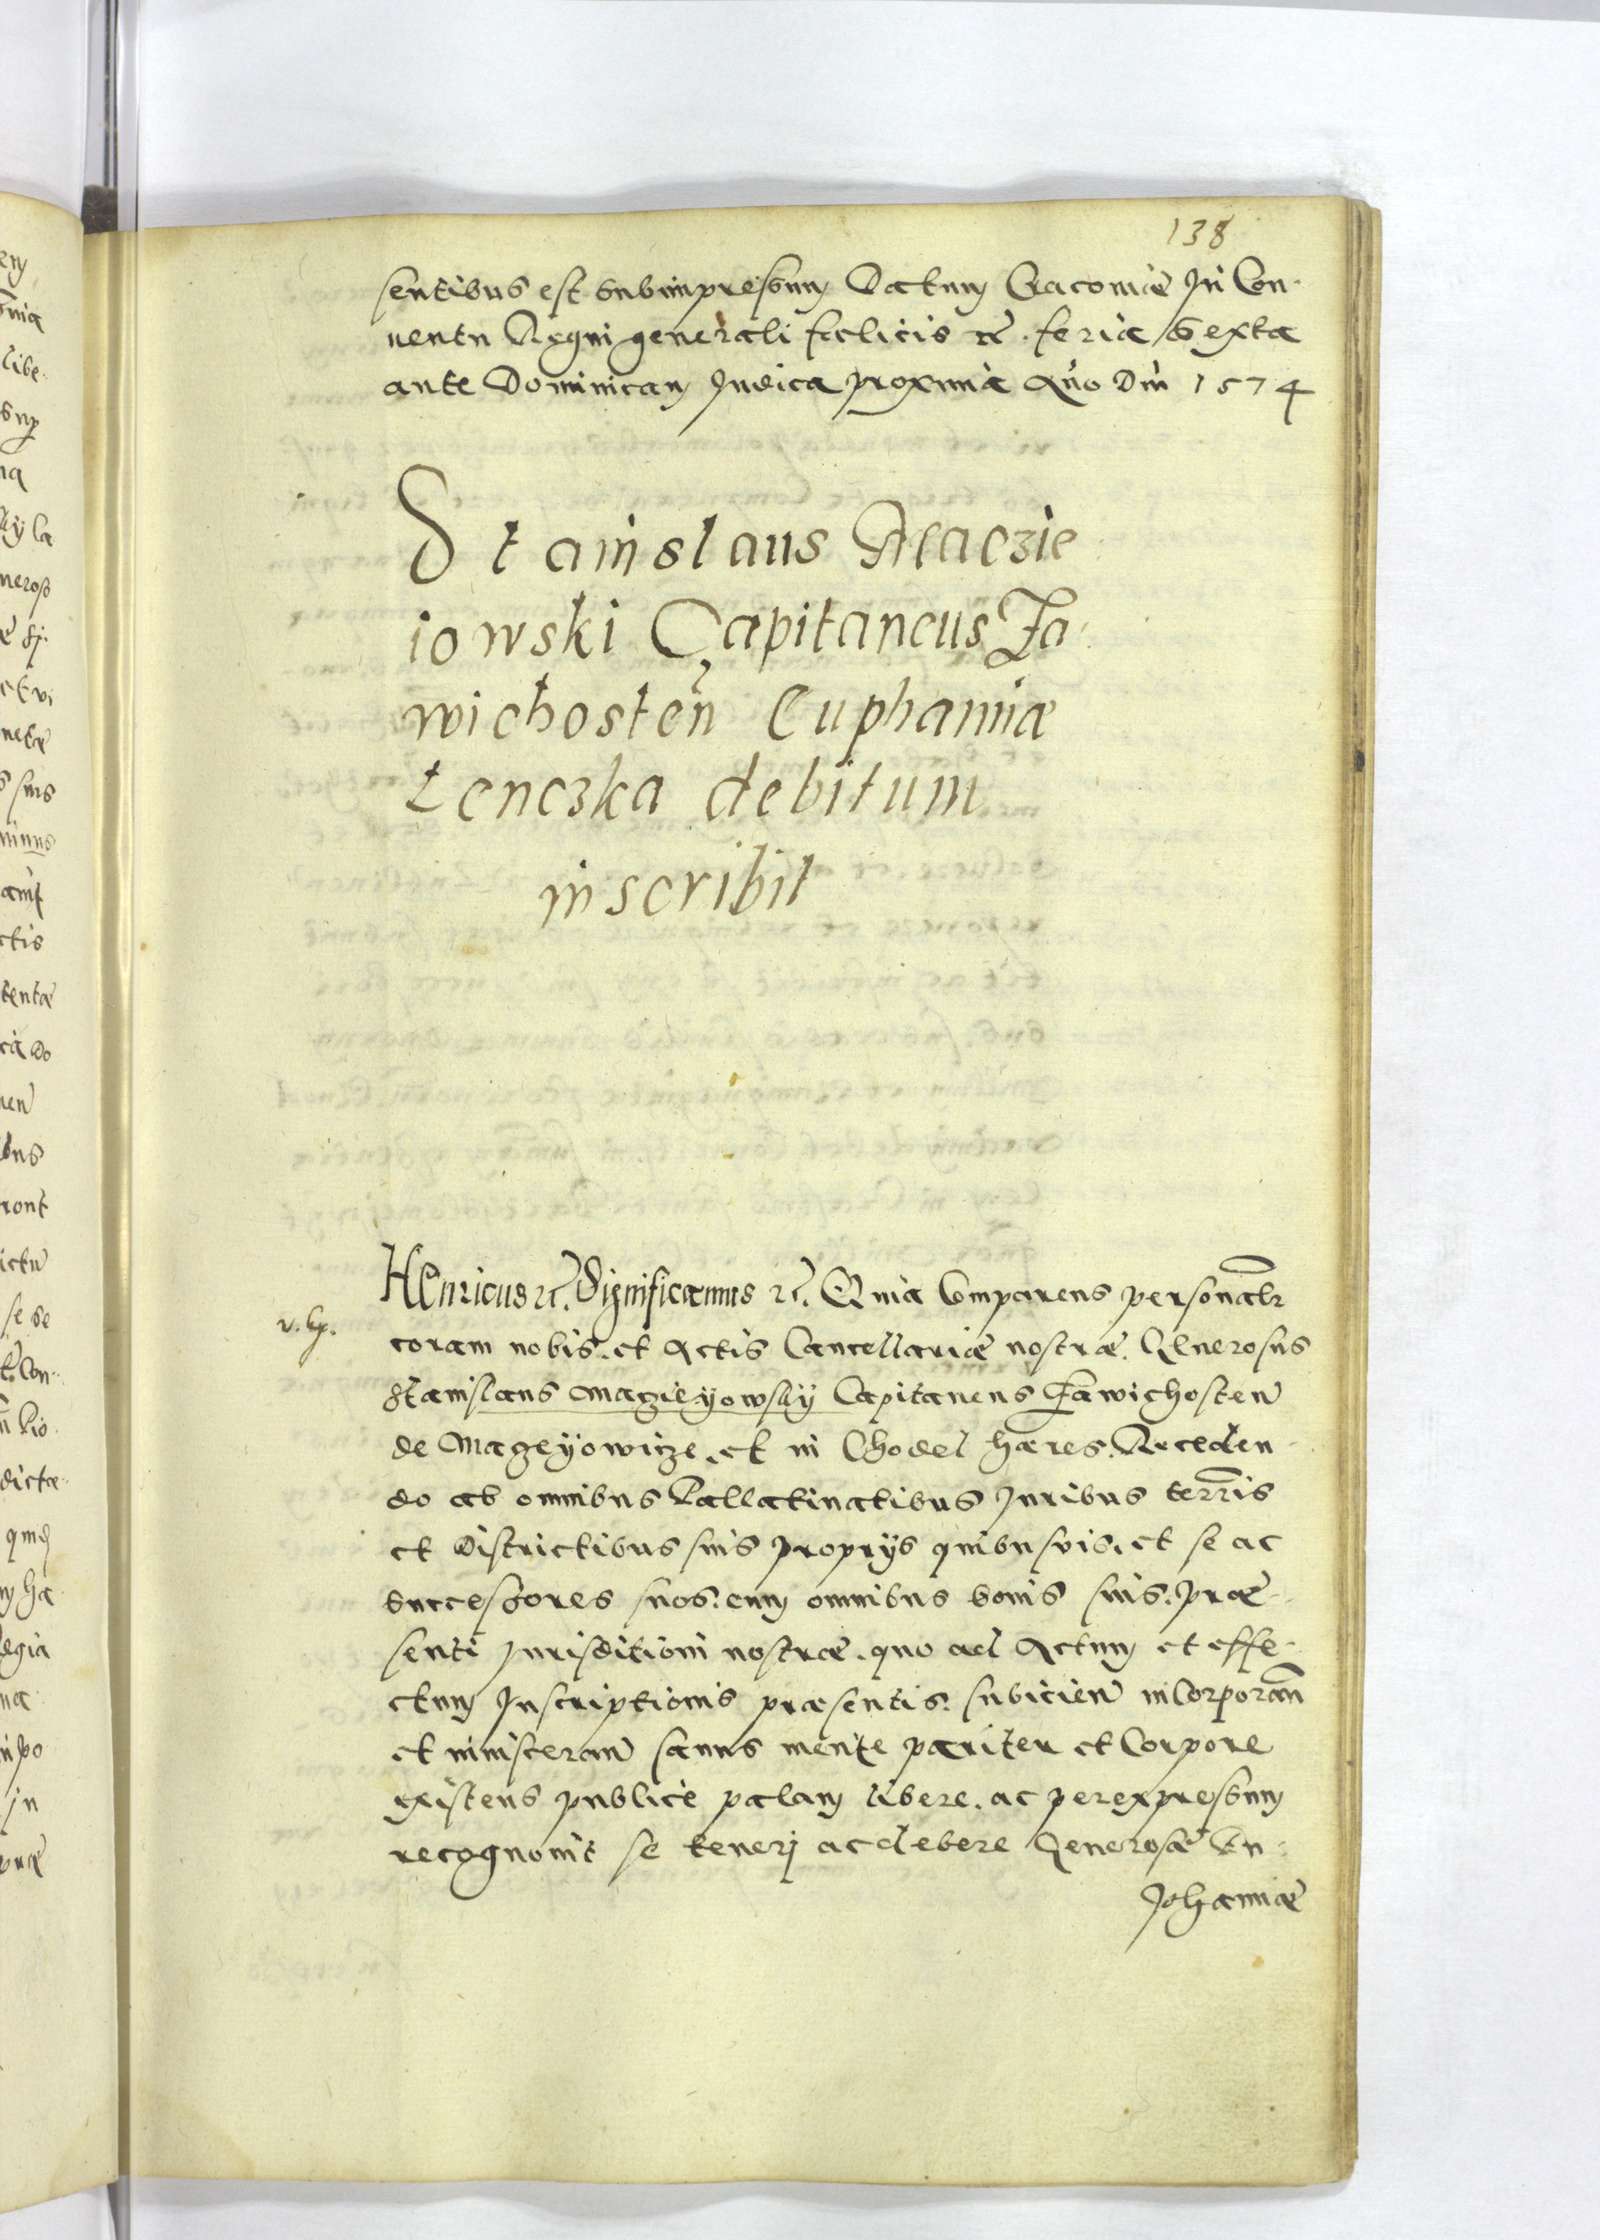 138
sentibus est subimpressum Datum Cracoviæ In Con-
uentu Regni generali fælicis &c. feria sexta
ante Dominicam Iudica proxima Año Dni 1574
Stanislaus Maczie
iowski Capitaneus Za-
wichosteñ Euphamiæ
Łenczka debitum
inscribit
Henricus &c. Significamus &c. Quia Comparens personalr
coram nobis et Actis Cancellariæ nostræ. Generosus
Stanislaus Magieyowsky Capitaneus Zawichosteñ
de Mageyowicze et in Chodel hæres. Receden-
do ab omnibus Pallatinatibus Iuribus terris
et Districtibus suis proprys quibusvis. et se ac
successores suos. cum omnibus bonis suis. præ-
senti Iurisditioni nostræ. quo ad Actum et effe-
ctum Inscriptionis præsentis. subicieñ inCorporañ
et inisceran̄ sanus mente pariter et Corpore
existens publice palam libere. ac per expressum
recognovit se tenerj ac debere Generosæ Eu-
phamiæ